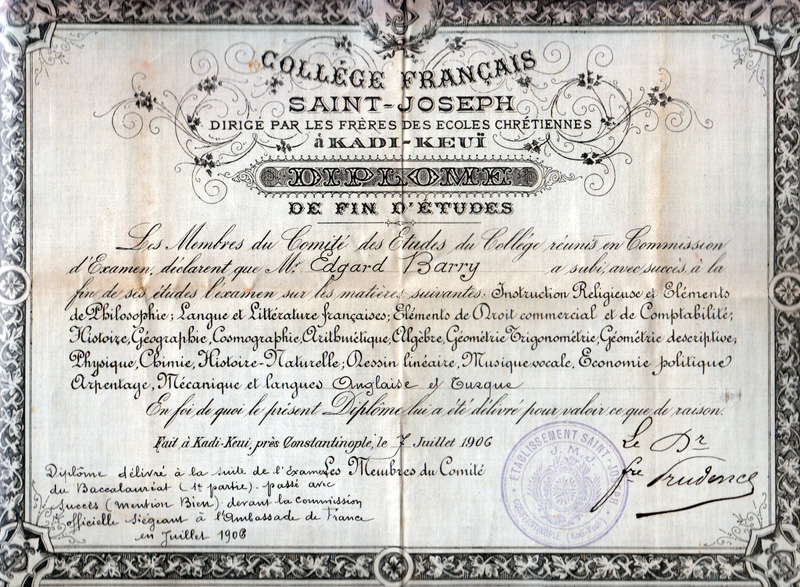 COLLÉGE FRANÇAIS
SAINT-JOSEPH
DIRIGÉ PAR LES FRÈRES DES ECOLES CHRÉTIENNES
à KADI-KEUÏ
DIPLOME
DE FIN D'ÉTUDES
Les Membres du Comité des Etudes du Collége réunis en Commission
d'Examen, déclarent que Mr Edgard Barry a subi, avec succès, à la
fin de ses études l'examen sur les matières suivantes: Instruction Religieuse et Eléments
de Philosophie; Langue et Littérature françaises; Eléments de Droit commercial et de Comptabilité;
Histoire, Géographie, Cosmographie, Arithmétique, Algèbre, Géométrie Trigonométrie, Géométrie descriptive;
Physique, Chimie, Histoire-Naturelle; Dessin linéaire, Musique vocale, Economie politique
Arpentage, Mécanique et langues Anglaise et Turque
En foi de quoi le présent Diplôme lui a été délivré pour valoir ce que de raison.
Fait à Kadi-Keui, près Constantinople, le 7 Juillet 1906
Les Membres du Comité
Le Dr
fre Prudence
ETABLISSEMENT SAINT-JOSEPH
J.M.J.
CONSTANTINOPLE (Kadi-Keui)
Diplôme délivré à la suite de l'Examen
du Baccalauréat (1e partie) passé avec
succès (mention Bien) devant la commission
officielle siégeant à l'Ambassade de France
en Juillet 1906